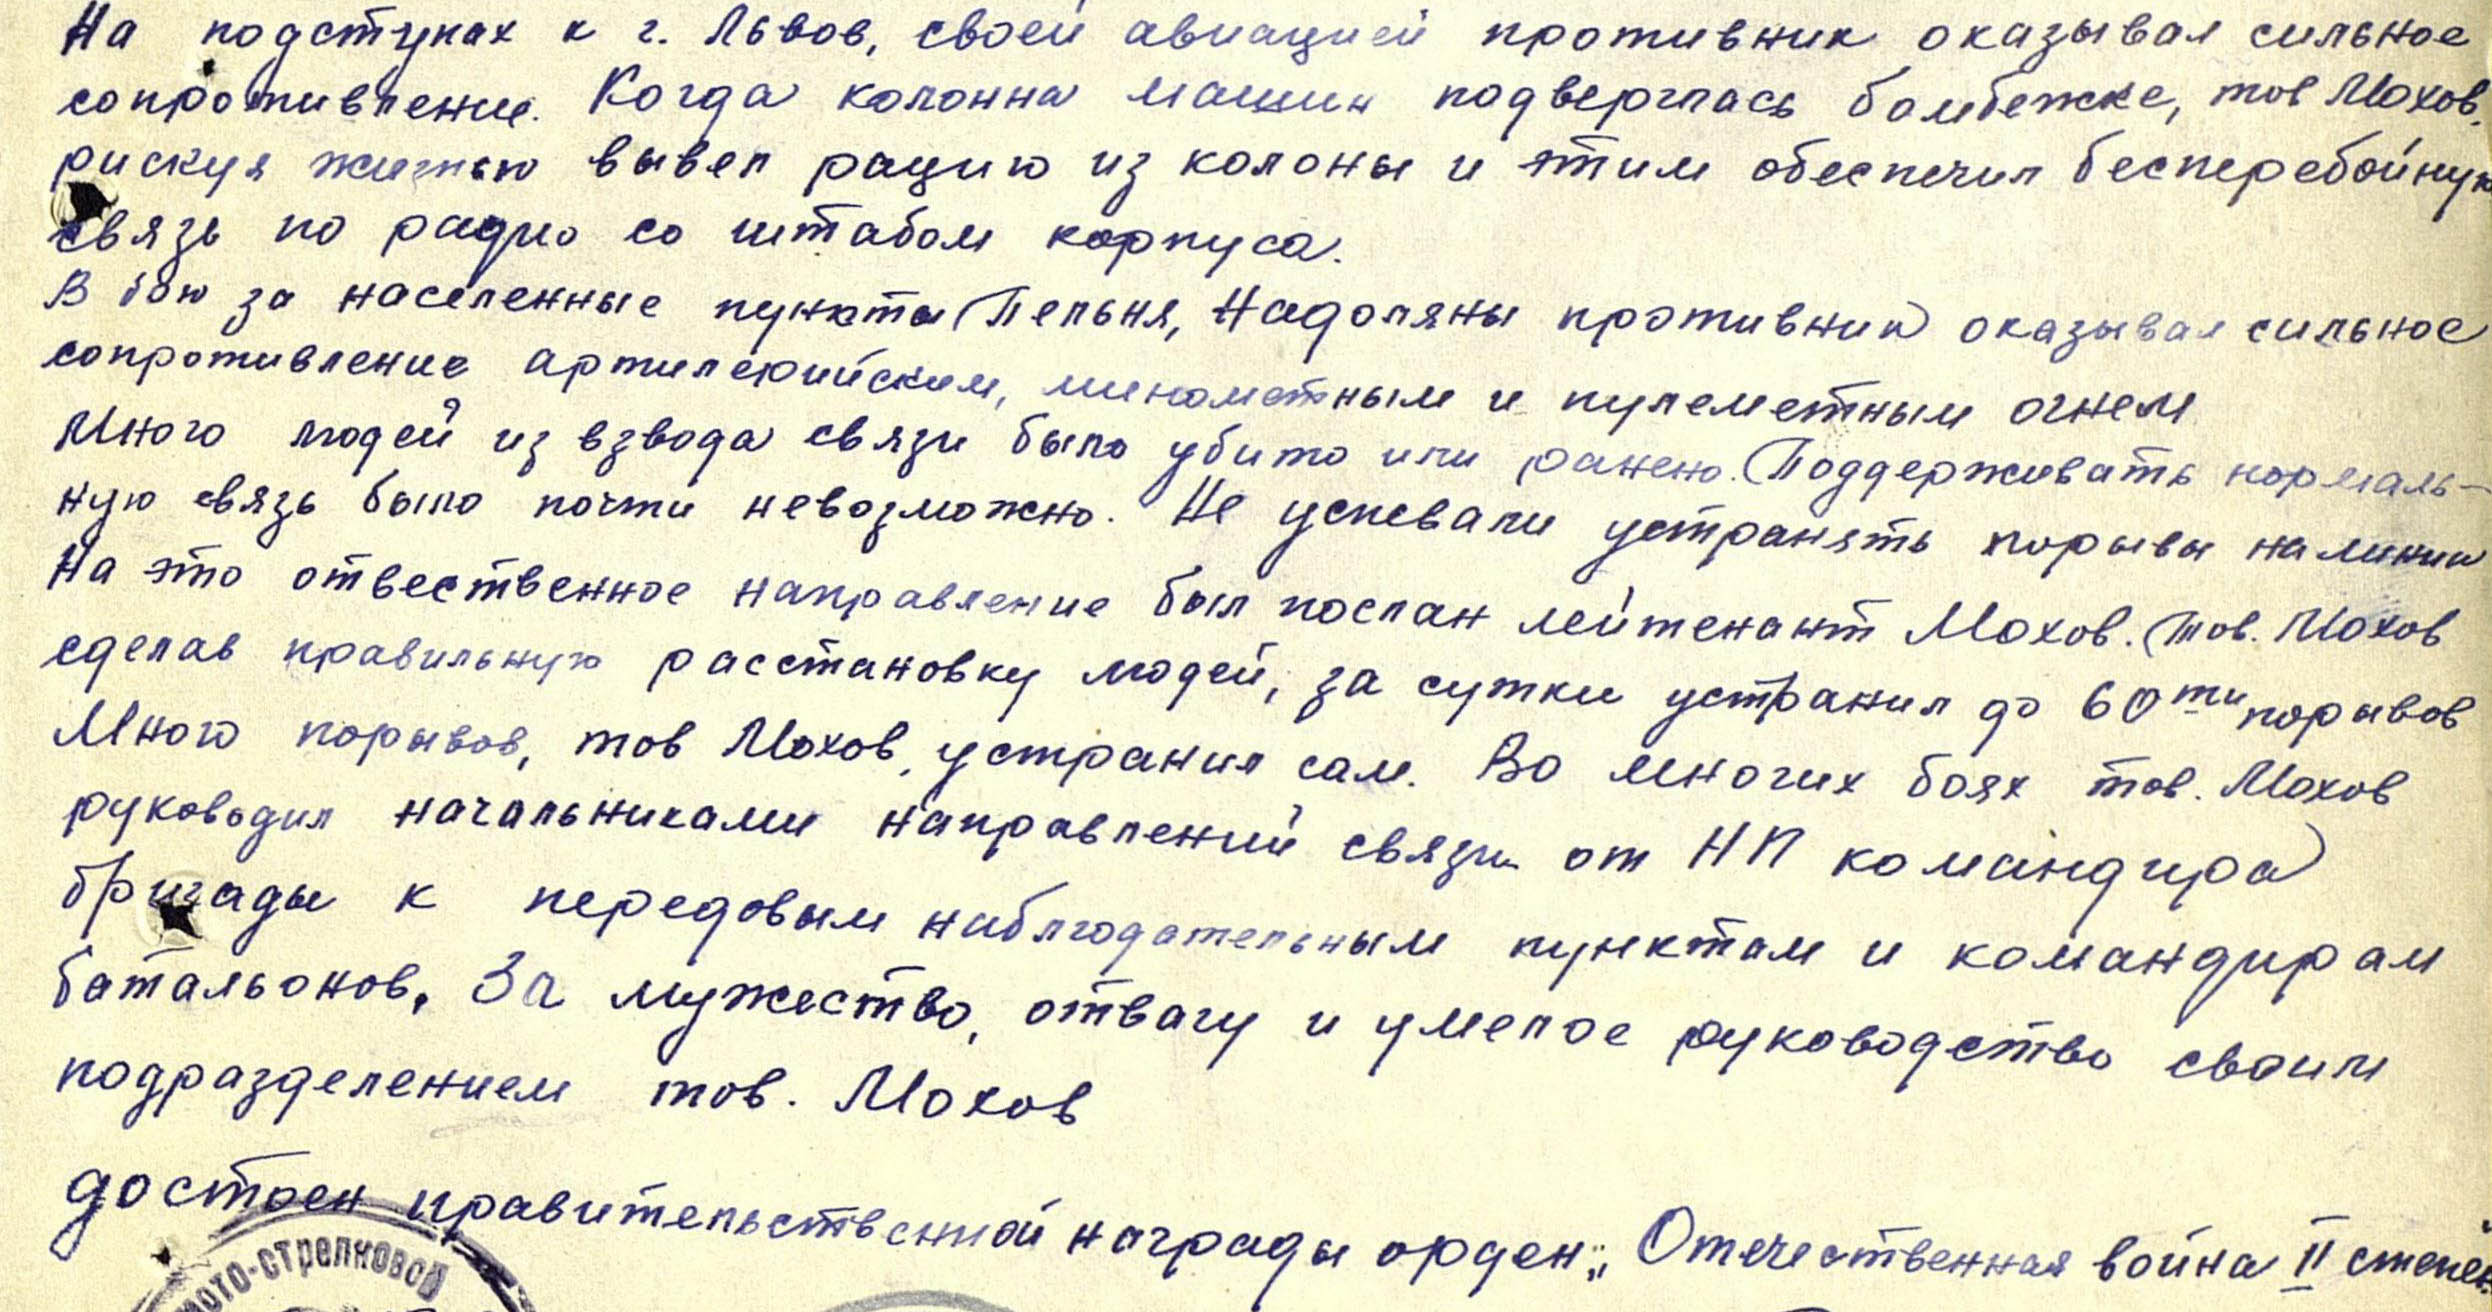 На подступах к г. Львов, своей авиацией противник оказывал сильное
сопротивление. Когда колонна машин подверглась бомбежке, тов Мохов,
рискуя жизнью вывел рацию из колоны и этим обеспечил бесперебойную
связь по радио со штабом корпуса.
В бою за населенные пункты Пельня, Надоляны противник оказывал сильное
сопротивление артилерийским, минометным и пулеметным огнем
Много людей из взвода связи было убито или ранено. Поддерживать нормаль-
ную связь было почти невозможно. Не успевали устранять порывы на линии
На это отвественное направление был послан лейтенант Мохов. Тов. Мохов
сделав правильную расстановку людей, за сутки устранил до 60ти порывов
Много порывов, тов Мохов, устранил сам. Во многих боях тов. Мохов
руководил начальниками направлений связи от НП командира
бригады к передовым наблюдательным пунктам и командирам
батальонов. За мужество, отвагу и умелое руководство своим
подразделением тов. Мохов
достоен правительственной награды орден „Отечественная война II степен
мото-стрелковой